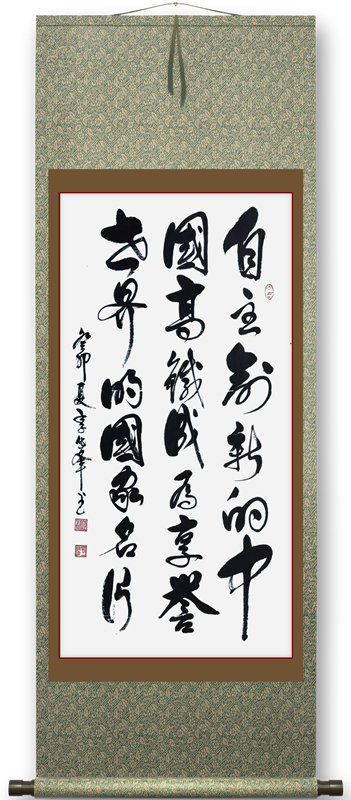 自主創新的中
國高鐵成為享譽
世界的國家名片
癸卯夏李